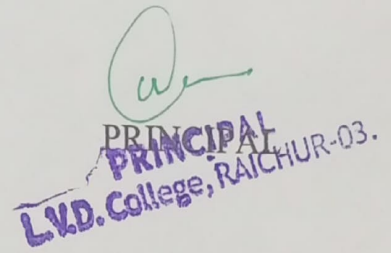 PRINCIPAL
PRINCIPAL
L.V.D. College, RAICHUR-03.